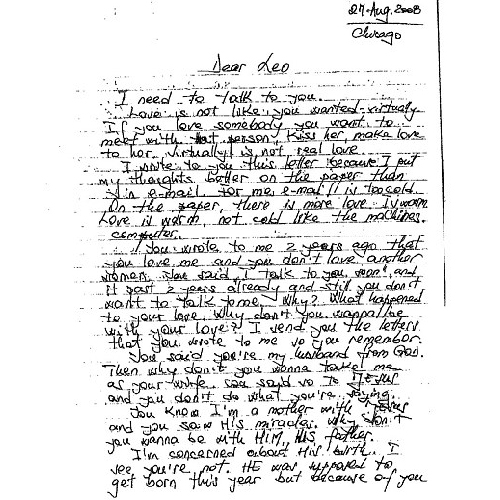 27. Aug. 2008
Chicago
Dear Leo
I need to talk to you.
Love is not like you wanted - virtually
If you love somebody you want to
meet with that person, kiss her, make love
to her. Virtually is not real love.
I wrote to you this letter because I put
my thoughts better on the paper than
in e-mail. For me e-mail is too cold.
On the paper, there is more love
Love is warm, not cold like the machines.
computer.
You wrote to me 2 years ago that
you love me and you don't love another
women. You said, I talk to you soon, and
it past 2 years already and still you don't
want to talk to me, Why? What happened
to your love, why don't you wanna be
with your love? I send you the letters
that you wrote to me so you remember.
You said you're my husband from God.
Then why don't you wanna take me
as your wife. You said so to Jesus
and you don't do what you're saying.
You know I'm a mother with Jesus
and you saw His miracles. Why don't
you wanna be with HIM, HIS father.
I'm concerned about His birth. I
see you're not. HE was supposed to
get born this year but because of you